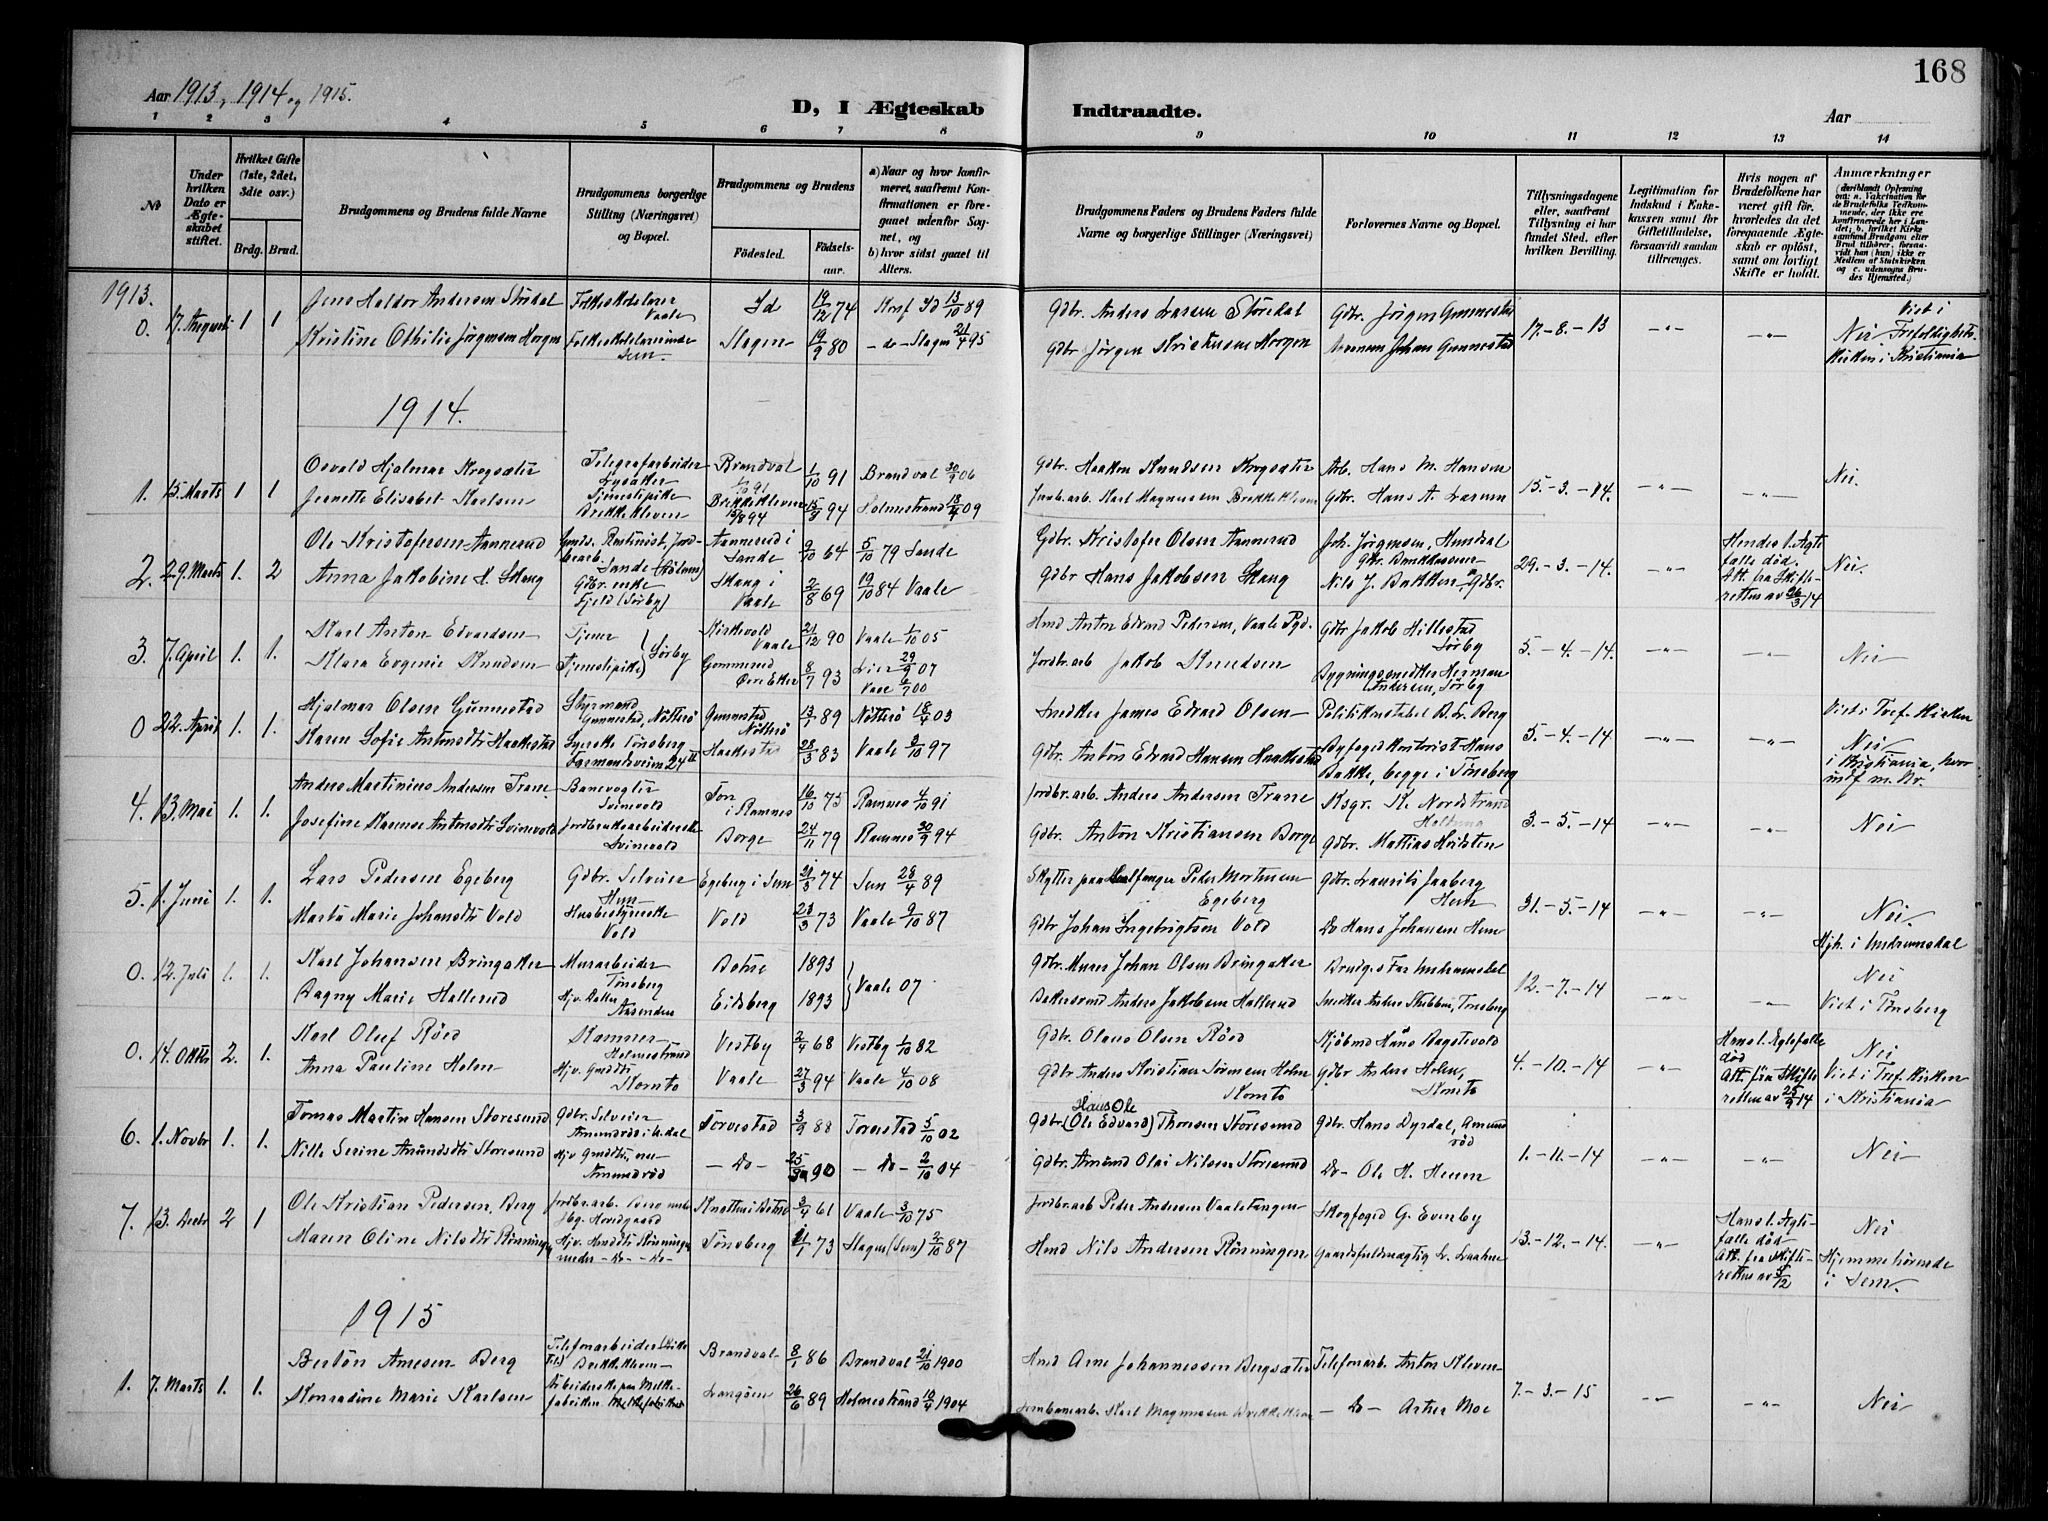 168
Aar 1913, 1914 og 1915.
D, I Ægteskab Indtraadte.
Aar
1 2 3 4 5 6 7 8 9 10 11 12 13 14
No
Under hvilken Dato er Ægteskabet stiftet.
Hvilket Gifte (1ste, 2det, 3die osv.)
Brdg. Brud.
Brudgommens og Brudens fulde Navne
Brudgommens borgerlige Stilling (Næringsvei) og Bopæl.
Brudgommens og Brudens
Fødested.
Fødselsaar.
a) Naar og hvor konfirmeret, saafremt Konfirmationen er foregaaet udenfor Sognet, og
b) hvor sidst gaaet til Alters.
Brudgommens Faders og Brudens Faders fulde Navne og borgerlige Stillinger (Næringsvei)
Forlovernes Navne og Bopæl.
Tillysningsdagene eller, saafremt Tillysning ei har fundet Sted, efter hvilken Bevilling.
Legitimation for Indskud i Enkekassen samt for Giftetilladelse, forsaavidt saadan tiltrænges.
Hvis nogen af Brudefolkene har været gift før, hvorledes da det foregaaende Ægteskab er opløst, samt om lovligt Skifte er holdt.
Anmærkninger
1913.
0. 17. August 1 1
Jens Haldor Andersen Støridal Folkeskolelærer Vaale Id 19/12 74 Konf Id 13/10 89 Gdbr. Anders Larsen Störedal Gdbr. Jörgen Gunnestad 17-8-13 -"- -"- Viet i
Kristine Othilie Jörgensen Horgen Folkeskolelærerinde Sem Slagen 19/9 80 -do- Slagen 21/4 95 Gdbr Jörgen Kristensen Horgen Johan Gunnestad Nei Trefoldighetskirken i Kristiania
1914.
1. 15. Marts 1 1
Osvald Hjalmar Krogsæter Telegrafarbeider Lysaker Brandval 1/10 91 Brandval 30/9 06 Gdbr. Haaken Knudsen Krogsæter Arb. Hans M. Hansen 15-3-14. -"- -"- Nei.
Jeanette Elisabet Karlsen Tjenestepike Brekkekleven Brekkekleven 15/8 94 15/8 94 Holmestrand 18/4 09 Jernb.arb. Karl Magnussen Brekkekleven Gdbr. Hans A. Larsen
2. 29. Marts 1. 2
Ole Kristofersen Aannerud Sande Aannerud i Sande 9/10 64 5/10 79 Sande Gdbr. Kristofer Olsen Aannerud Joh. Jörgensen, Hundal 29-3-14. -"- Hendes 1. Ægtefælle død. Att. fra Skifteretten av 26/3 14 Nei.
Anna Jakobine H. Skaug Gdbr. enke Fjeld (Sörby) Skaug i Vaale 2/8 69 19/10 84 Vaale Gdbr Hans Jakobsen Skaug Nils J. Bakken, Gdbr.
3. 7. April 1. 1.
Karl Anton Edvardsen Tjener Sörby Kirkevold Vaale 21/12 90 Vaale 1/10 05 Hmd Anton Edvard Pedersen, Vaale Pgd. Gdbr Jakob Hillestad Sörby 5.-4.-14. -"- -"- Nei
Klara Evgenie Knudsen Tjenestepike Gommerud Övre Eiker 8/7 93 Lier 29/9 07 Jordbr.arb Jakob Knudsen Bygningssnedker Herman Andersen, Sörby
0 22. April 1. 1.
Hjalmar Olsen Gunnestad Styrmand Gunnestad, Nötterö Gunnestad Nötterö 13/1 89 Nötterö 18/4 03 Snedker James Edvard Olsen Politikonstabel B. L. Berg 5.-4.-14 -"- -"- Viet i Tref. Kirken
Karen Sofie Antonsdtr Haakestad Syerske Tönsberg Farmandsveien 24 II Haakestad 28/3 83 Vaale 3/10 97 Gdbr. Anton Edvard Hansen Haakestad Byfogedkontorist Hans Bakke, begge i Tönsberg Nei i Kristiania, hvor indf m. Nr.
4. 13. Mai 1. 1.
Anders Martinius Andersen Trane Banevogter Svinevold Ton i Ramnes 16/10 75 Ramnes 4/10 91 Jordbr.arb. Anders Andersen Trane Ksgr. K. Nordstrand 3.-5.-14 -"- -"- Nei
Josefine Antonsdtr Svinevold Svinevold Borge 24/11 79 Ramnes 30/9 94 Gdbr. Anton Kristiansen Borge Gdbr. Mattias Hvilsten
5. 1. Juni 1. 1.
Lars Pedersen Egeberg Gdbr. Selveier Hem Egeberg i Sem 21/3 74 Sem 28/4 89 Skytter paa Hvalfanger Peder Mortensen Egeberg Gdbr. Laurits Jaaberg Hem 31.-5.-14 -"- -"- Nei
Marta Marie Johansdtr Vold Husbestyrerske Vold Vold 23/3 73 Vaale 9/10 87 Gdbr Johan Ingebrigtsen Vold Do Hans Johansen Hem
0. 12. Juli 1. 1.
Karl Johansen Bringaker Murarbeider Tönsberg Botne 1893 Vaale 07 Gdbr. Murer Johan Olsen Bringaker Brudgs Far Undrumsdal 12.-7.-14 -"- -"- Hjh. i Undrumsdal Nei
Dagny Marie Hallerud Hjv. Datter Aasenden Eidsberg 1893 Bakersvend Anders Jakobsen Hallerud Snedker Anders Stubben, Tönsberg Viet i Tönsberg
0. 14. Oktbr 2. 1.
Karl Oluf Röed Holmestrand Vestby 2/4 68 Vestby 1/10 82 Gdbr. Olaus Olsen Röed Kjöbmd Hans Bagstevold 4.-10.-14 -"- Hans 1. Egtefælle död Att. fra Skifteretten av 25/9 14 Nei
Anna Pauline Holm Hjv. Gmdtr. Komto Vaale 27/3 94 Vaale 4/10 08 Gdbr Anders Kristian Sörensen Holm Komto Gdbr Anders Holm, Komto Viet i Tref. Kirken i Kristiania
6. 1. Novbr 1. 1.
Tomas Martin Hansen Storesund Gdbr. Selveier Amundröd i U.dal Torvestad 3/9 88 Torvestad 5/10 02 Hans Ole Gdbr (Ole Edvard) Thomsen Storesund Gdbr. Hans Dyrdal, Amundröd 1.-11.-14 -"- -"- Nei
Nille Serine Amundsdtr Storesund Hjv. Gmdtr., nu Amundröd -Do- 25/3 90 -Do- 2/10 04 Gdbr. Amund Olai Nilsen Storesund Do- Ole H. Heum
7. 13. Decbr 2 1
Ole Kristian Pedersen Berg Jordbr.arb. Berg Knatten i Botne 3/4 61 Vaale 3/10 75 Jordbr.arb Peder Andersen Vaaletangen Skogfoged G. Evenby 13.-12.-14. -"- Hans 1. Ægtefælle död Att. fra Skifteretten av 5/12 Nei
Maren Oline Nilsdtr Rönningen Hjv. Hmdtr Rönningen under -Do- -Do- Tönsberg 11/1 73 Slagen (Sem) 2/10 87 Hmd Nils Andersen Rönningen Gaardsfuldmægtig L. Laahne Hjemmehörende i Sem.
1915
1. 7. Marts 1. 1.
Bertön Arnesen Berg Telefonarbeider Brekkekleven Brandval 8/1 86 Brandval 21/10 1900 Hmd Arne Johannessen Bergsæter Telefonarb. Anton Kleven 7.-3.-15 -"- -"- Nei
Konradine Marie Karlsen Arbeiderske paa Melkefabriken Langöen 26/6 89 Holmestrand 10/4 1904 Jernbanearb. Karl Magnussen Brekkekleven -Do- Artur Moe